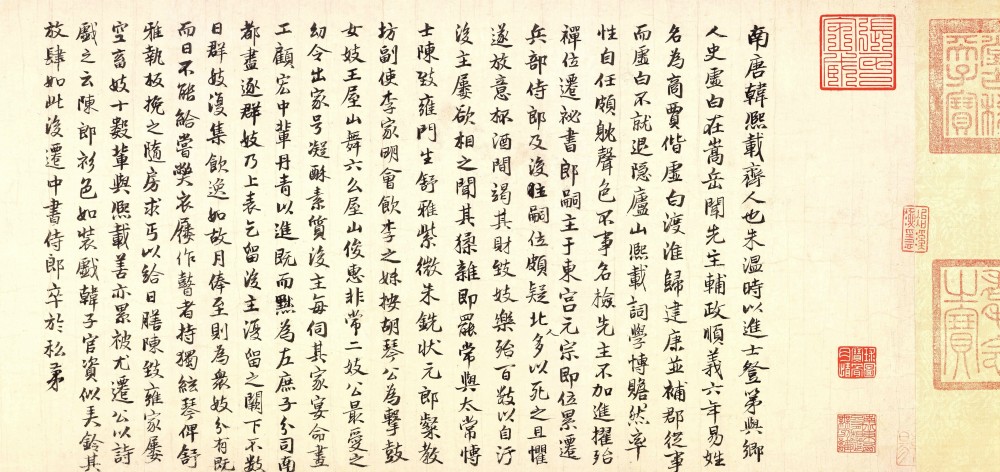 南唐韓熙載齊人也朱溫時以進士登第與鄉
人史虛白在嵩岳聞先生輔政順義六年易姓
名為商賈偕虛白渡淮歸建康並補郡從事
而虛白不就退隱廬山熙載詞學博贍然率
性自任頗躭聲色不事名檢先主不加進擢殆
禪位遷祕書郎嗣主于東宮元宗即位累遷
兵部侍郎及後主嗣位頗疑北人多以死之且懼
遂放意杯酒間竭其財致妓樂殆百數以自汙
後主屢欲相之聞其猱雜即罷常與太常博
士陳致雍門生舒雅紫微朱銑狀元郎粲教
坊副使李家明會飲李之妹按胡琴公為擊鼓
女妓王屋山舞六么屋山俊惠非常二妓公最愛之
幼令出家号凝酥素質後主每伺其家宴命畫
工顧宏中輩丹青以進既而黜為左庶子分司南
都盡逐群妓乃上表乞留後主復留之闕下不數
日群妓復集飲逸如故月俸至則為衆妓分有既
而日不能給嘗弊衣屨作瞽者持獨絃琴俾舒
雅執板挽之隨房求丐以給日膳陳致雍家屢
空畜妓十數輩與熙載善亦累被尤遷公以詩
戲之云陳郎衫色如裝戲韓子官資似美鈴其
放肆如此後遷中書侍郎卒於私第